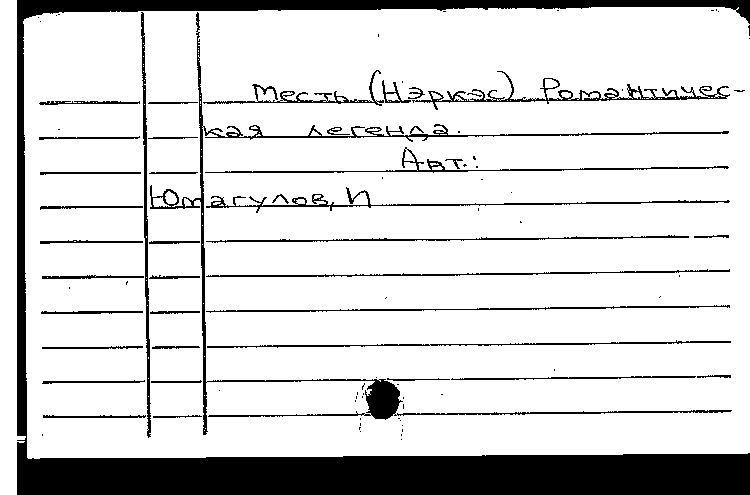 Месть (Нэркэс). Романтичес-
кая легенда.
Авт.:
Юмагулов, И